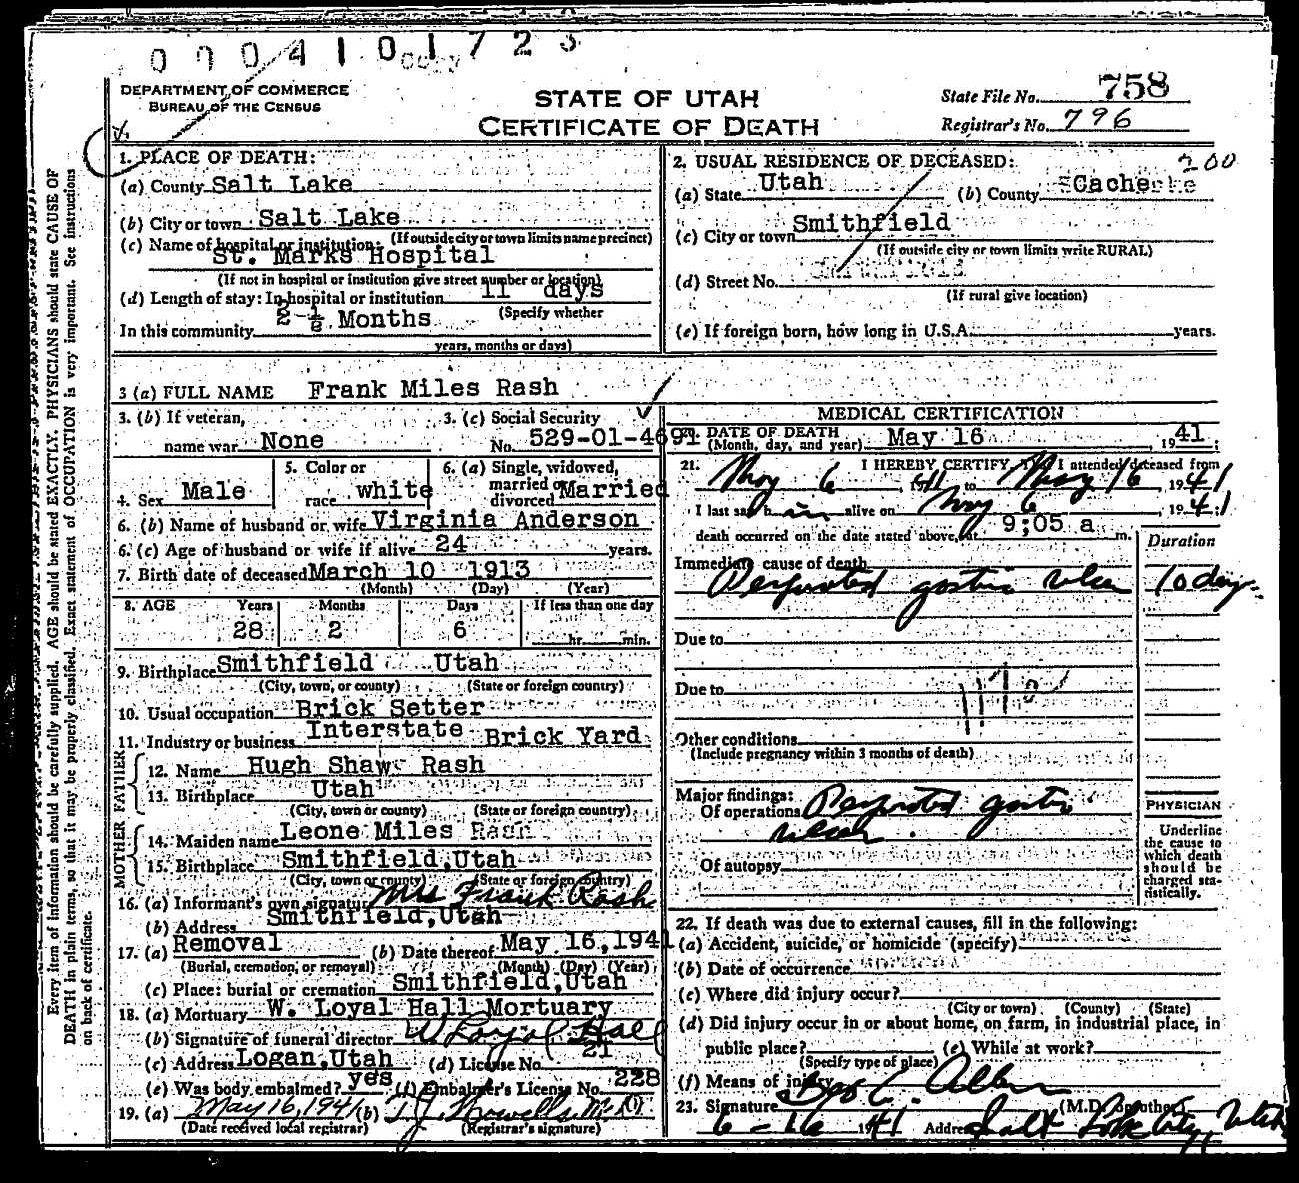 0004101723
DEPARTMENT OF COMMERCE
BUREAU OF THE CENSUS
STATE OF UTAH
CERTIFICATE OF DEATH
State File No. 758
Registrar's No. 796
1. PLACE OF DEATH:
(a) County Salt Lake
(b) City or town Salt Lake
(If outside city or town limits name precinct)
(c) Name of hospital or institution:
St. Marks Hospital
(If not in hospital or institution give street number or location)
(d) Length of stay: In hospital or institution 11 days
(Specify whether
In this community 2-½ Months
years, months or days)
2. USUAL RESIDENCE OF DECEASED: 200
(a) State Utah (b) County Cache
(c) City or town Smithfield
(If outside city or town limits write RURAL)
(d) Street No.
(If rural give location)
(e) If foreign born, how long in U.S.A. years.
3 (a) FULL NAME Frank Miles Rash
3. (b) If veteran,
name war None
3. (c) Social Security
No. 529-01-4691
4. Sex Male
5. Color or
race white
6. (a) Single, widowed,
married or
divorced Married
6. (b) Name of husband or wife Virginia Anderson
6. (c) Age of husband or wife if alive 24 years.
7. Birth date of deceased March 10 1913
(Month) (Day) (Year)
8. AGE Years Months Days If less than one day
28 2 6 hr. min.
9. Birthplace Smithfield Utah
(City, town, or county) (State or foreign country)
10. Usual occupation Brick Setter
11. Industry or business Interstate Brick Yard
FATHER
12. Name Hugh Shaw Rash
13. Birthplace Utah
(City, town or county) (State or foreign country)
MOTHER
14. Maiden name Leone Miles Rash
15. Birthplace Smithfield, Utah
(City, town or county) (State or foreign country)
16. (a) Informant's own signature Mrs Frank Rash
(b) Address Smithfield, Utah
17. (a) Removal (b) Date thereof May 16, 1941
(Burial, cremation, or removal) (Month) (Day) (Year)
(c) Place: burial or cremation Smithfield, Utah
18. (a) Mortuary W. Loyal Hall Mortuary
(b) Signature of funeral director W Loyal Hall
(c) Address Logan, Utah (d) License No. 21
(e) Was body embalmed? yes (f) Embalmer's License No. 228
19. (a) May 16, 1941 (b) T. J. Howells M.D.
(Date received local registrar) (Registrar's signature)
MEDICAL CERTIFICATION
20. DATE OF DEATH
(Month, day, and year) May 16, 1941;
21. I HEREBY CERTIFY, That I attended deceased from
May 6, 1941 to May 16, 1941
I last saw him alive on May 6, 1941;
death occurred on the date stated above, at 9;05 a m.
Duration
Immediate cause of death
Perforated gastric ulcer 10 days
Due to
Due to
Other conditions
(Include pregnancy within 3 months of death)
Major findings:
Of operations Perforated gastric
ulcer.
Of autopsy
PHYSICIAN
Underline
the cause to
which death
should be
charged sta-
tistically.
22. If death was due to external causes, fill in the following:
(a) Accident, suicide, or homicide (specify)
(b) Date of occurrence
(c) Where did injury occur?
(City or town) (County) (State)
(d) Did injury occur in or about home, on farm, in industrial place, in
public place? (e) While at work?
(Specify type of place)
(f) Means of injury
23. Signature Geo C. Allen (M.D. or other)
6-16 1941 Address Salt Lake City, Utah
Every item of information should be carefully supplied. AGE should be stated EXACTLY. PHYSICIANS should state CAUSE OF
DEATH in plain terms, so that it may be properly classified. Exact statement of OCCUPATION is very important. See instructions
on back of certificate.